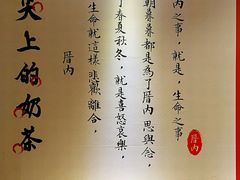 內之事，就是，生命之事
朝暮暮都是為了厝內思與念，
了春夏秋冬，就是喜怒哀樂，
生命就這樣悲歡離合，
厝內
尖上的奶茶
厝內